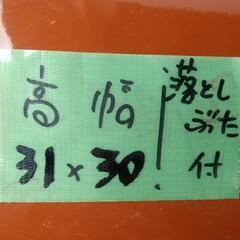 高 幅
31×30
落とし
ぶた
付